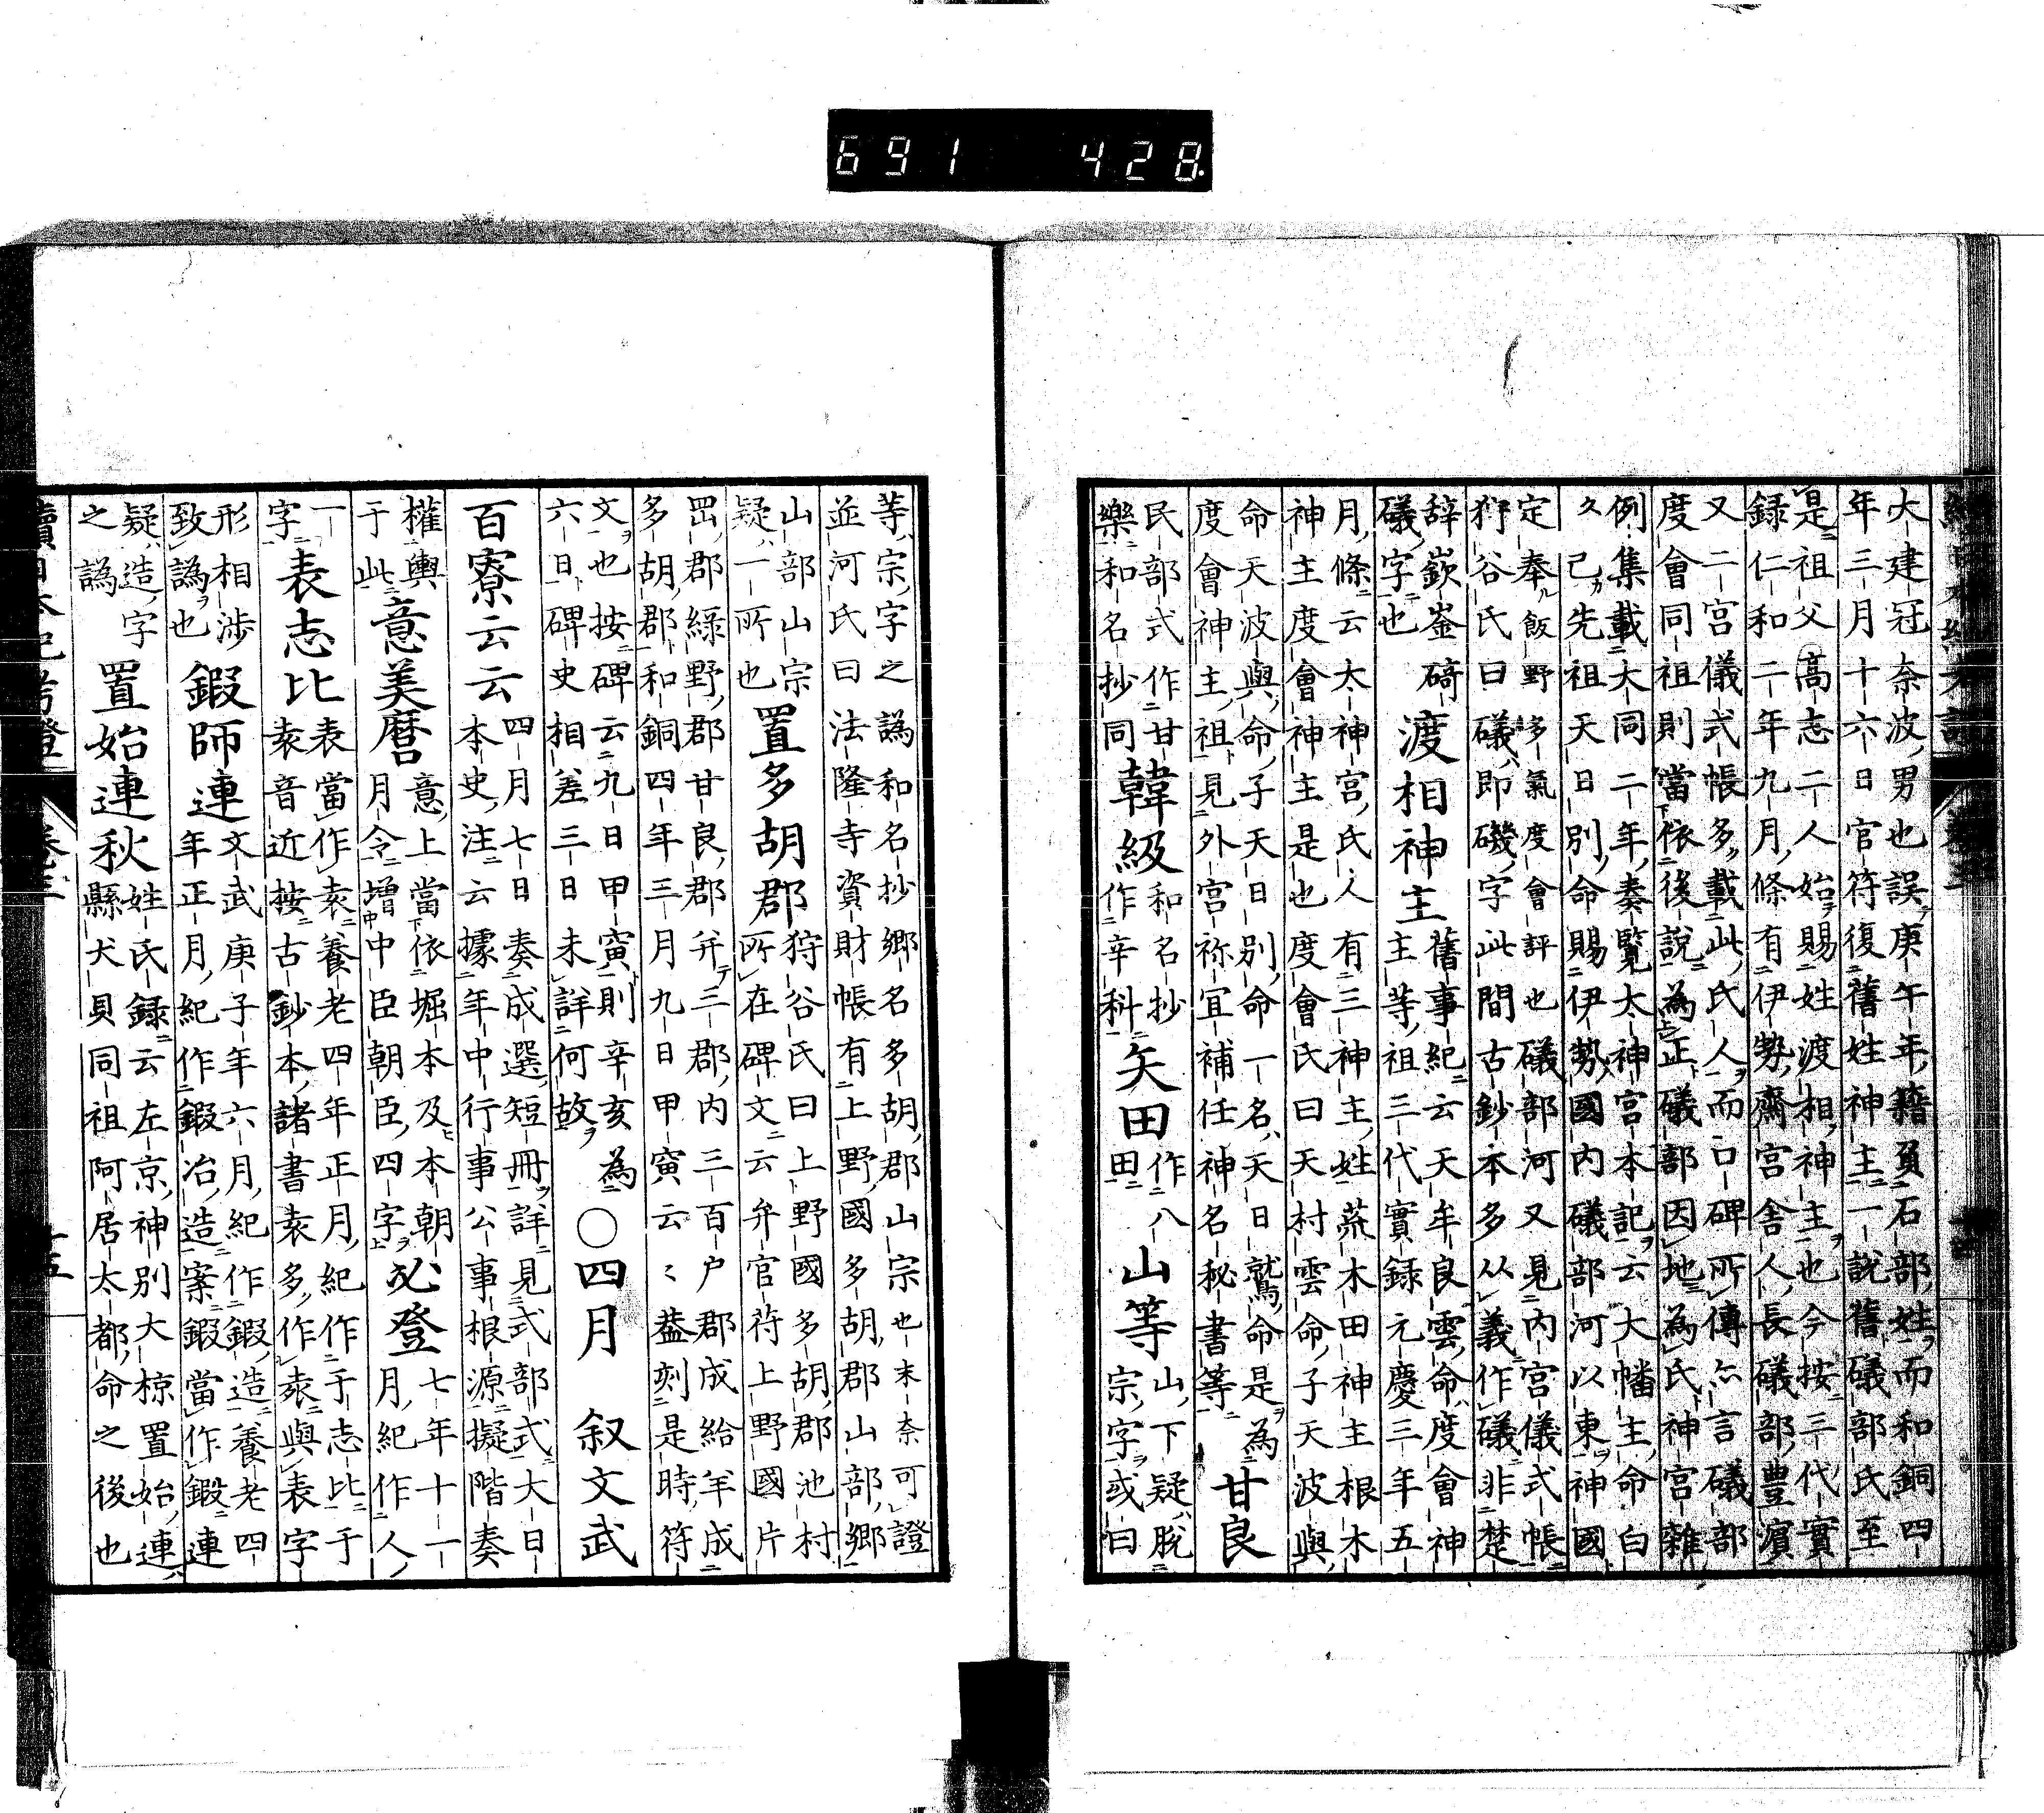 691 428
大建冠奈波男也誤庚午年籍負石部姓而和銅四
年三月十六日官符復舊姓神主一說舊礒部氏至
是祖父高志二人始賜姓渡相神主也今按三代實
録仁和二年九月條有伊勢齋宮舍人長礒部豊濵
又二宮儀式帳多載此氏人而口碑所傳亦言礒部
度會同祖則當依後說為正礒部因地為氏神宮雜
例集載大同二年奏覧太神宮本記云大幡主命白
久己先祖天日別命賜伊勢國内礒部河以東神國
定奉飯野多氣度會評也礒部河又見内宮儀式帳
狩谷氏曰礒即磯字此間古鈔本多从義作礒非楚
辭嶔崟碕
礒字也
渡相神主
舊事紀云天牟良雲命度會神
主等祖三代實録元慶三年五
月條云太神宮氏人有三神主姓荒木田神主根木
神主度會神主是也度會氏曰天村雲命子天波與
命天波與命子天日別命一名天日鷲命是為
度會神主祖見外宮祢宜補任神名秘書等
甘良
民部式作甘
樂和名抄同
韓級
和名抄
作辛科
矢田
作八
田
山等
山下疑脫
宗字或曰
等宗字之譌和名抄郷名多胡郡山宗也末奈可證
並河氏曰法隆寺資財帳有上野國多胡郡山部郷
山部山宗
疑一所也
置多胡郡
狩谷氏曰上野國多胡郡池村
所在碑文云弁官符上野國片
罡郡綠野郡甘良郡并三郡内三百户郡成給羊成
多胡郡和銅四年三月九日甲寅云〻葢刻是時符
文也按碑云九日甲寅則辛亥為
六日碑史相差三日未詳何故
○四月 叙文武
百寮云云
四月七日奏成選短冊詳見式部式大日
本史注云據年中行事公事根源擬階奏
權輿
于此
意美麿
意上當依堀本及本朝
月令增中中臣朝臣四字
必登
七年十一
月紀作人
一
字
表志比
表當作袁養老四年正月紀作于志比于
袁音近按古鈔本諸書袁多作㐮與表字
形相渉
致譌也
鍜師連
文武庚子年六月紀作鍜造養老四
年正月紀作鍜冶造案鍜當作鍛連
疑造字
之譌
置始連秋
姓氏録云左京神別大椋置始連
縣犬貝同祖阿居太都命之後也